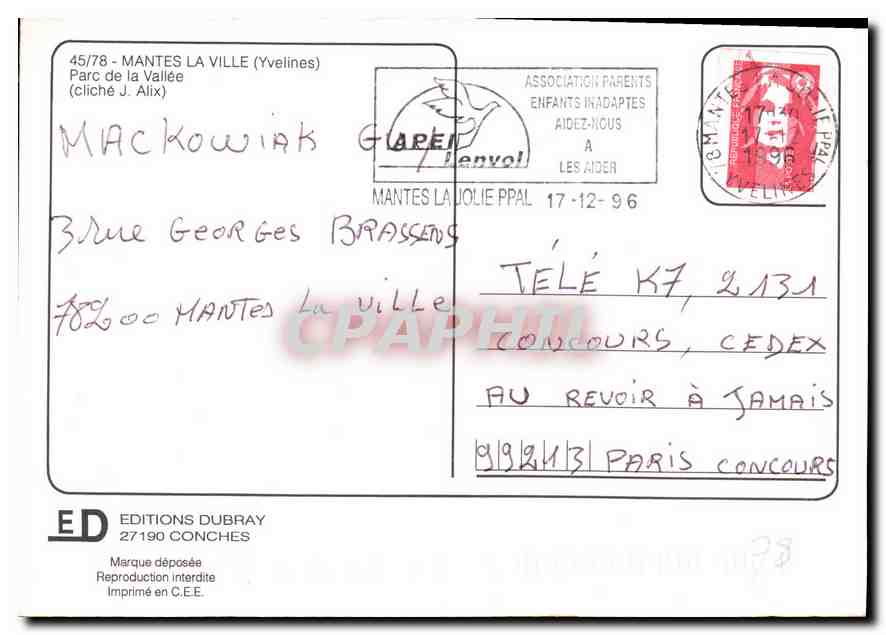 45/78 - MANTES LA VILLE (Yvelines)
Parc de la Vallée
(cliché J. Alix)
ASSOCIATION PARENTS
ENFANTS INADAPTES
AIDEZ-NOUS
A
LES AIDER
APEI
Lenvol
MANTES LA JOLIE PPAL 17-12-96
REPUBLIQUE FRANCAISE
17-12
1996
YVELINES
MACKOWIAK Guy
3 rue GEORGES BRASSENS
78200 MANTES La VILLE
TÉLÉ K7, 2131
CONCOURS, CEDEX
AU REVOIR À JAMAIS
99213 PARIS CONCOURS
CPAPHIL
ED EDITIONS DUBRAY
27190 CONCHES
Marque déposée
Reproduction interdite
Imprimé en C.E.E.
78